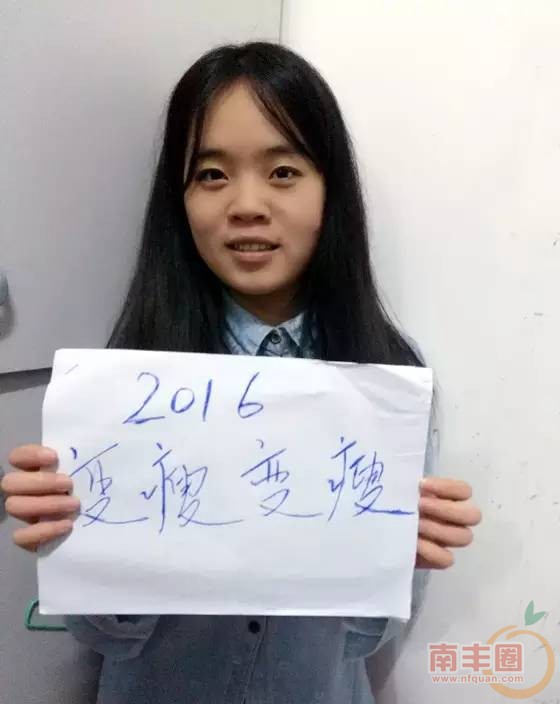 2016
变瘦变瘦
南丰圈
www.nfquan.com